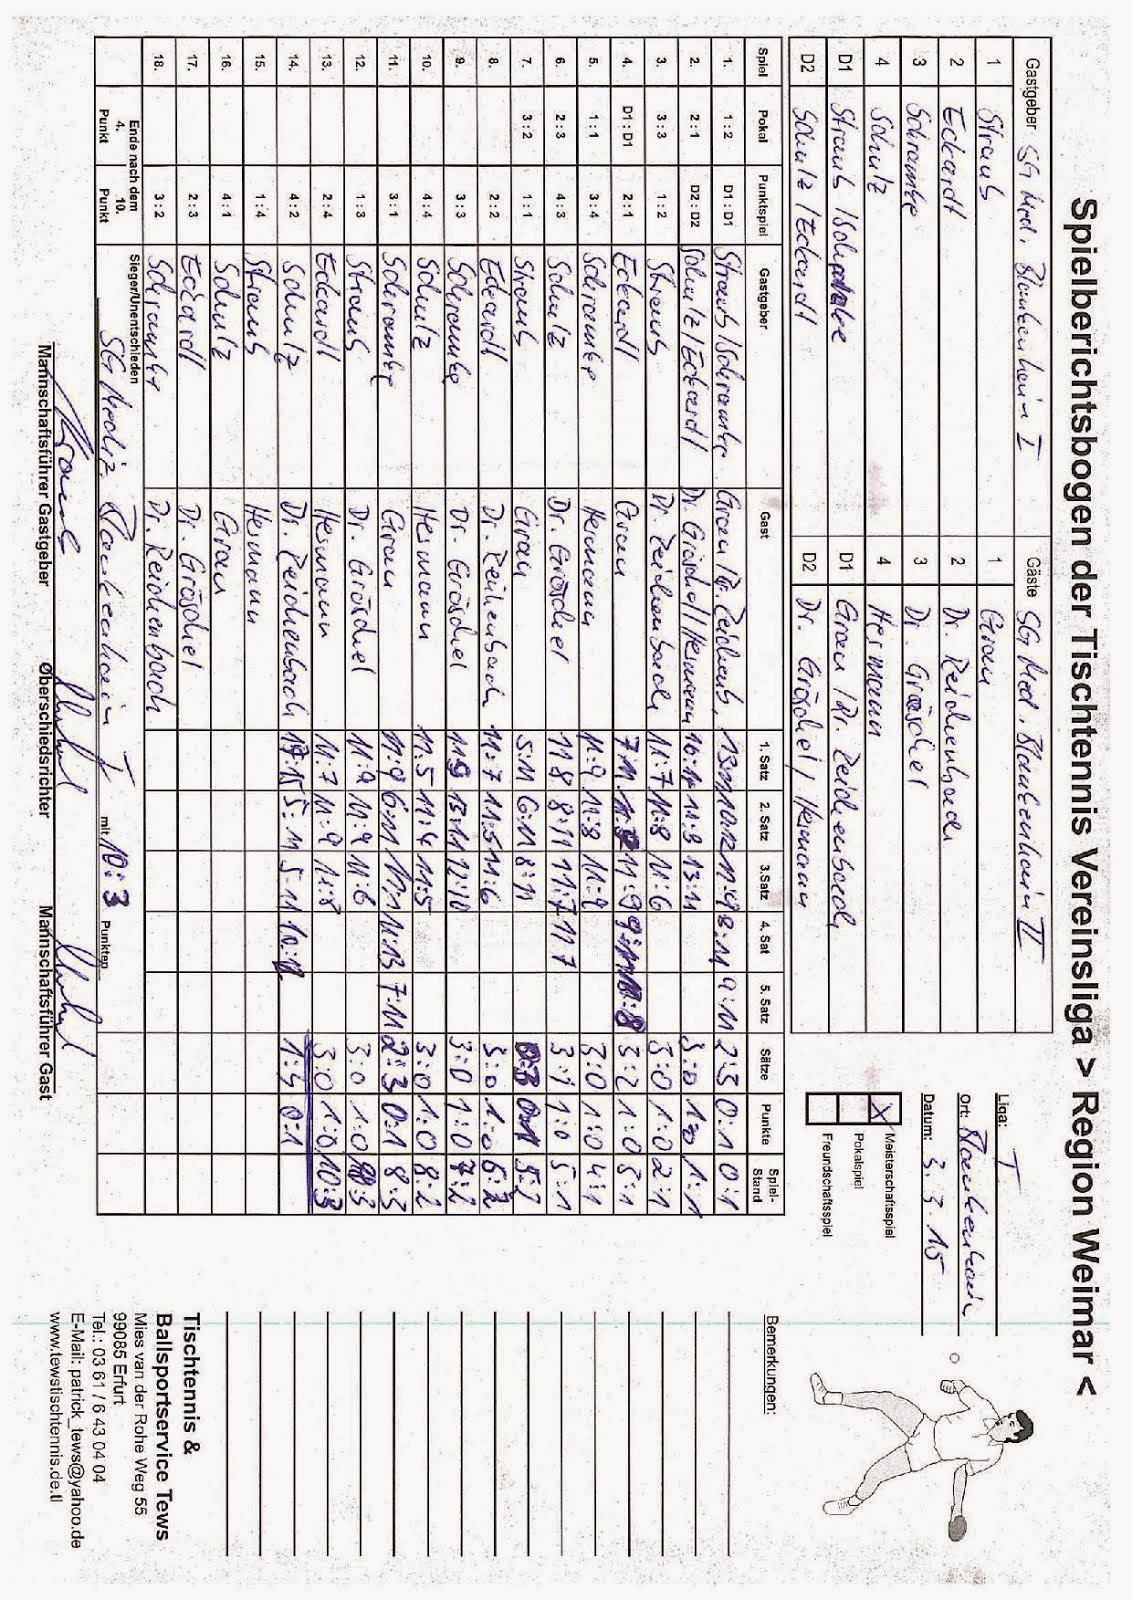 Spielberichtsbogen der Tischtennis Vereinsliga > Region Weimar <
Gastgeber SG Med. Blankenhain I Gäste SG Med. Blankenhain II
1 Straub 1 Gran
2 Eckardt 2 Dr. Reichenbach
3 Schramke 3 Dr. Gröschel
4 Schulz 4 Hermann
D1 Straub / Schramke D1 Gran / Dr. Reichenbach
D2 Schulz / Eckardt D2 Dr. Gröschel / Hermann
Liga: I
Ort: Blankenhain
Datum: 3.3.15
X Meisterschaftsspiel
Pokalspiel
Freundschaftsspiel
Spiel Pokal Punktspiel Gastgeber Gast 1. Satz 2. Satz 3.Satz 4. Sat 5. Satz Sätze Punkte Spiel-Stand
1. 1 : 2 D1 : D1 Straub / Schramke Gran / Dr. Reichenb. 8:11 9:11 2:3 0:1 0:1
2. 2 : 1 D2 : D2 Schulz / Eckardt Dr. Gröschel / Hermann 16:14 11:9 13:11 3:0 1:0 1:1
3. 3 : 3 1 : 2 Straub Dr. Reichenbach 11:7 11:8 11:6 3:0 1:0 2:1
4. D1 : D1 2 : 1 Eckardt Gran 7:11 11:9 9:11 3:2 1:0 3:1
5. 1 : 1 3 : 4 Schramke Hermann 11:9 11:8 11:9 3:0 1:0 4:1
6. 2 : 3 4 : 3 Schulz Dr. Gröschel 11:8 8:11 11:7 11:7 3:1 1:0 5:1
7. 3 : 2 1 : 1 Straub Gran 5:11 6:11 8:11 0:3 0:1 5:2
8. 2 : 2 Eckardt Dr. Reichenbach 11:7 11:5 11:6 3:0 1:0 6:2
9. 3 : 3 Schramke Dr. Gröschel 11:9 13:11 12:10 3:0 1:0 7:2
10. 4 : 4 Schulz Hermann 11:5 11:4 11:5 3:0 1:0 8:2
11. 3 : 1 Schramke Gran 11:9 6:11 11:13 7:11 2:3 0:1 8:3
12. 1 : 3 Straub Dr. Gröschel 11:9 11:9 11:6 3:0 1:0
13. 2 : 4 Eckardt Hermann 11:7 11:9 11:8 3:0 1:0 10:3
14. 4 : 2 Schulz Dr. Reichenbach 5:11 5:11 10:12 0:1
15. 1 : 4 Straub Hermann
16. 4 : 1 Schulz Gran
17. 2 : 3 Eckardt Dr. Gröschel
18. 3 : 2 Schramke Dr. Reichenbach
Ende nach dem
4. Punkt 10. Punkt
Sieger/Unentschieden SG Mediz. Blankenhain I mit 10:3 Punkten
Mannschaftsführer Gastgeber Oberschiedsrichter Mannschaftsführer Gast
Bemerkungen:
Tischtennis &
Ballsportservice Tews
Mies van der Rohe Weg 55
99085 Erfurt
Tel.: 03 61 / 6 43 04 04
E-Mail: patrick_tews@yahoo.de
www.tewstischtennis.de.tl